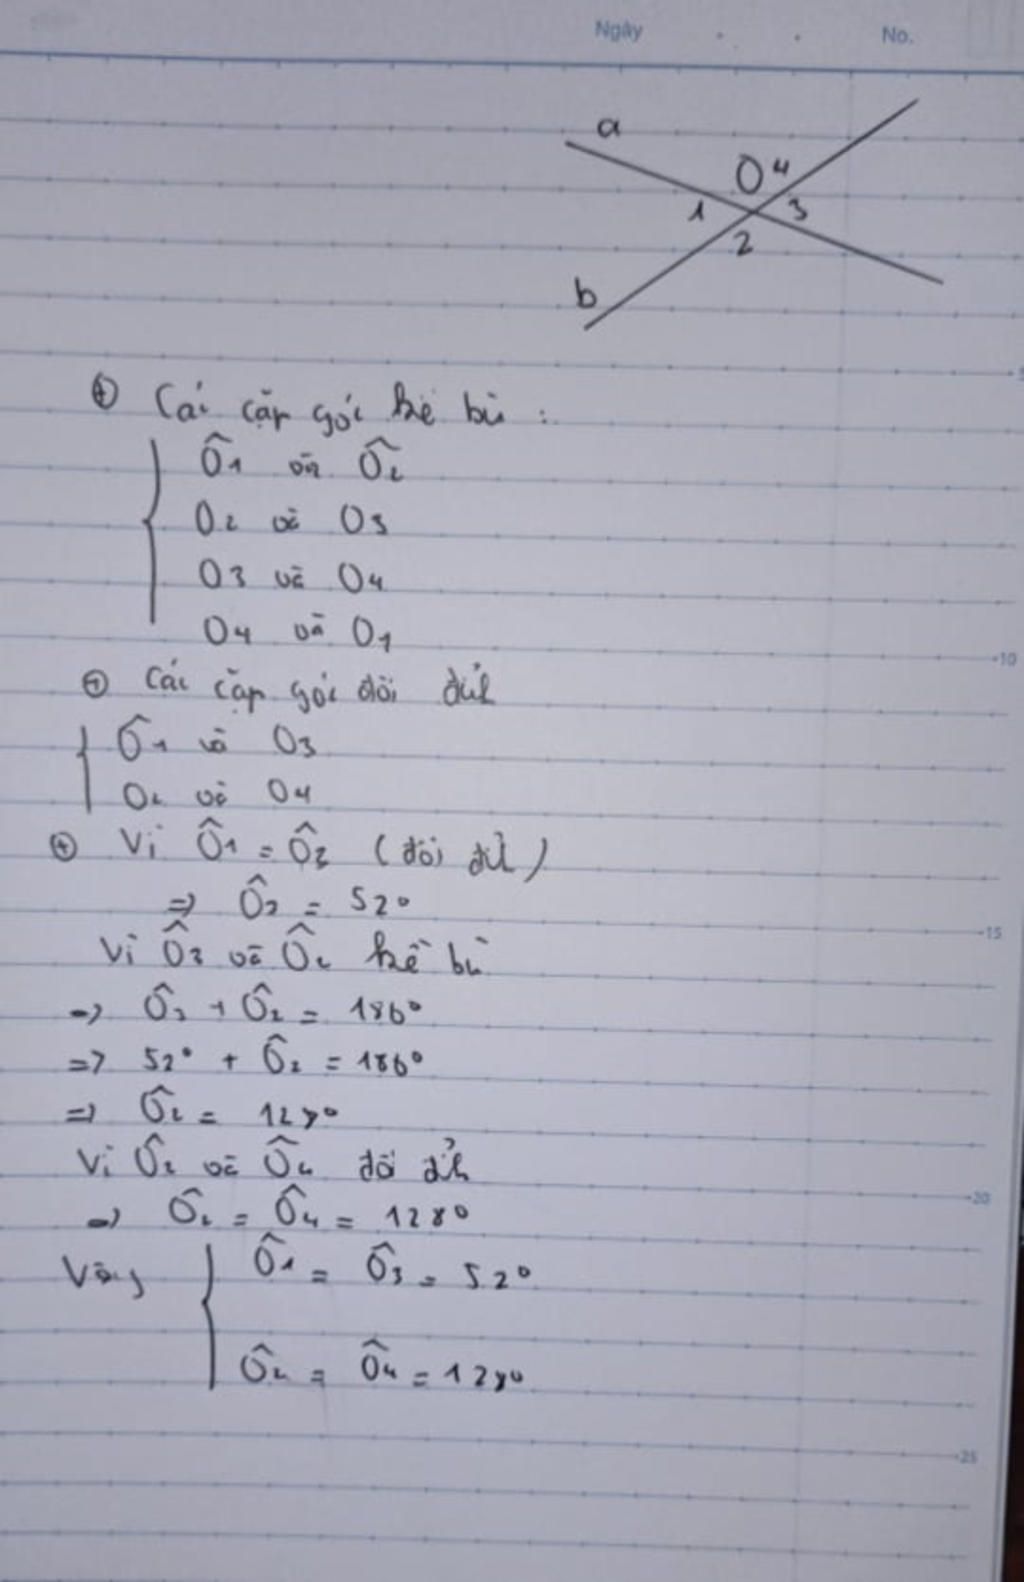 Ngày . . No.
a
O 4
1 3
2
b
⊕ Các cặp góc kề bù :
Ô1 và Ô2
O2 và O3
O3 và O4
O4 và O1
⊕ Các cặp góc đối đỉnh
Ô1 và O3
O2 và O4
⊕ Vì Ô1 = Ô3 (đối đỉnh)
=> Ô3 = 52°
Vì Ô3 và Ô2 kề bù
=> Ô3 + Ô2 = 180°
=> 52° + Ô2 = 180°
=> Ô2 = 128°
Vì Ô2 và Ô4 đối đỉnh
=> Ô2 = Ô4 = 128°
Vậy Ô1 = Ô3 = 52°
Ô2 = Ô4 = 128°
10
15
20
25